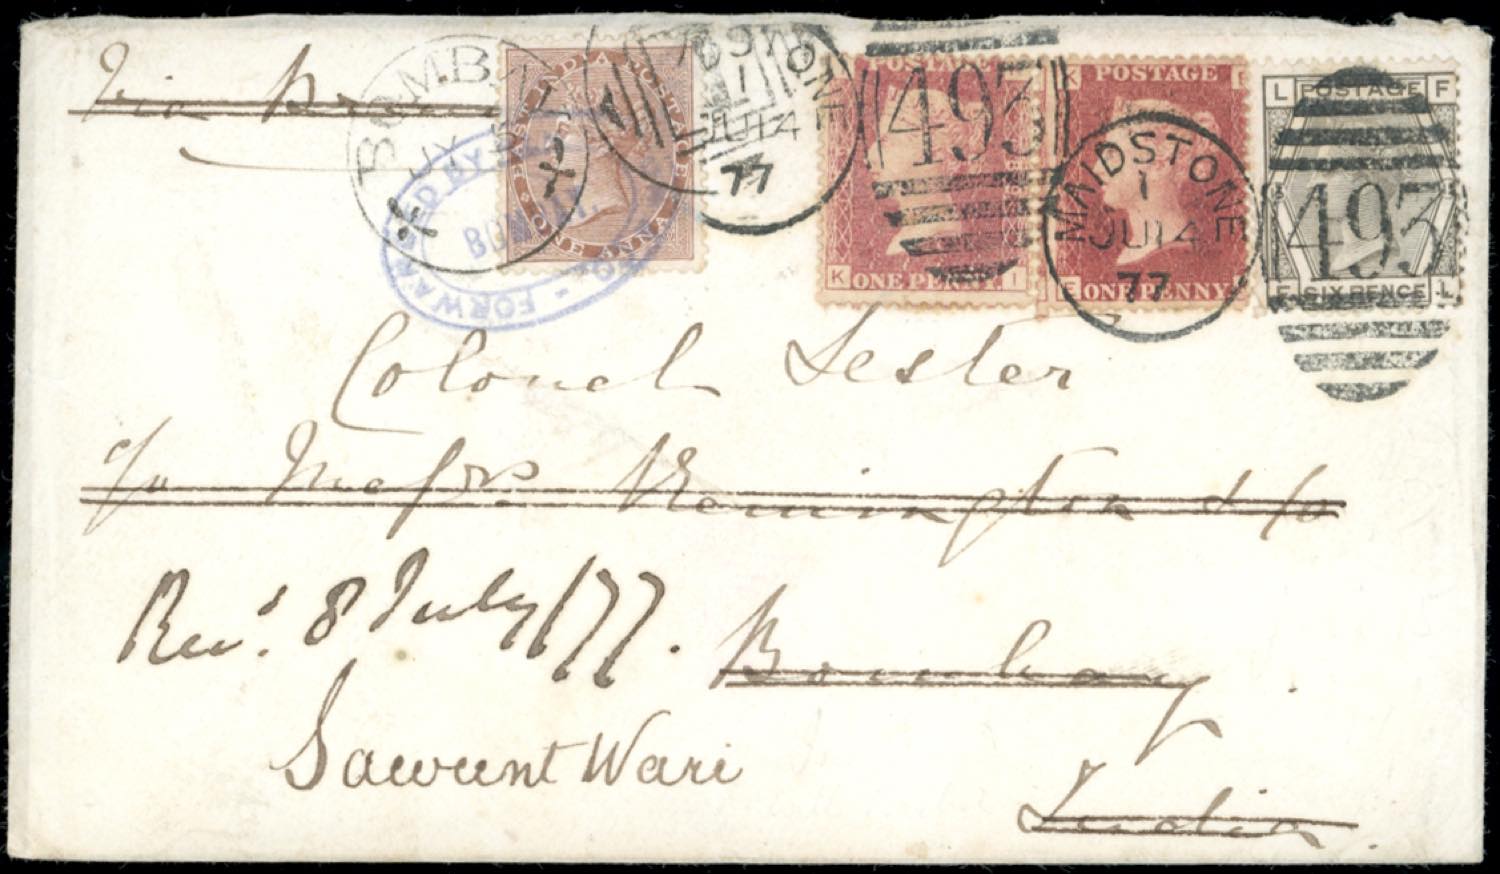 Via
BOMBAY
JY 5
FORWARDED BY
BOMBAY
EAST INDIA POSTAGE
ONE ANNA
MAIDSTONE
1
JU 14
77
POSTAGE
493
K ONE PENNY I
K POSTAGE
MAIDSTONE
1
JU 14
77
ONE PENNY
L POSTAGE F
493
F SIX PENCE L
Colonel Lester
c/o Messrs Remington & Co
Recd. 8 July /77.
Bombay
Sawunt Wari
India